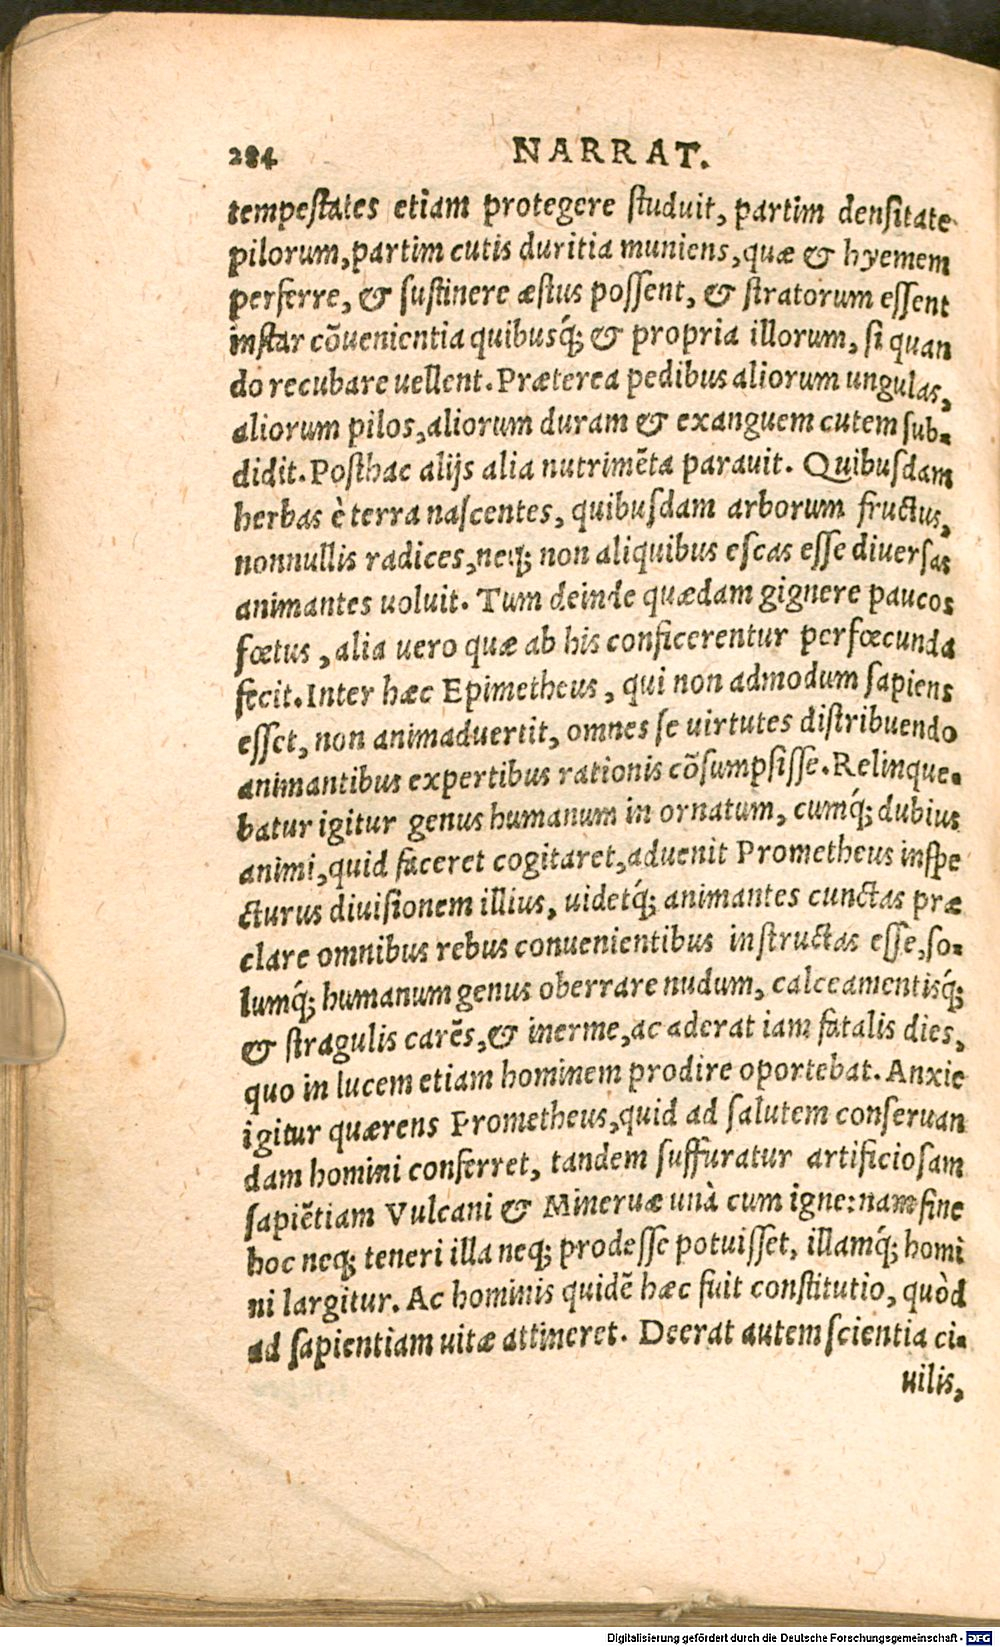 284 NARRAT.
tempeſtates etiam protegere ſtuduit, partim denſitate
pilorum, partim cutis duritia muniens, quæ & hyemem
perferre, & ſuſtinere æſtus poſſent, & ſtratorum eſſent
inſtar cõuenientia quibusq́; & propria illorum, ſi quan
do recubare uellent. Præterea pedibus aliorum ungulas,
aliorum pilos, aliorum duram & exanguem cutem ſub-
didit. Poſthac alijs alia nutrimẽta parauit. Quibuſdam
herbas è terra naſcentes, quibuſdam arborum fructus,
nonnullis radices, neq; non aliquibus eſcas eſſe diuerſas
animantes uoluit. Tum deinde quædam gignere paucos
fœtus, alia uero quæ ab his conficerentur perfœcunda
fecit. Inter hæc Epimetheus, qui non admodum ſapiens
eſſet, non animaduertit, omnes ſe uirtutes diſtribuendo
animantibus expertibus rationis cõſumpſiſſe. Relinque-
batur igitur genus humanum in ornatum, cumq́; dubius
animi, quid faceret cogitaret, aduenit Prometheus inſpe
cturus diuiſionem illius, uidetq́; animantes cunctas præ
clare omnibus rebus conuenientibus inſtructas eſſe, ſo-
lumq́; humanum genus oberrare nudum, calceamentisq́;
& ſtragulis carẽs, & inerme, ac aderat iam fatalis dies,
quo in lucem etiam hominem prodire oportebat. Anxie
igitur quærens Prometheus, quid ad ſalutem conſeruan
dam homini conferret, tandem ſuffuratur artificioſam
ſapiẽtiam Vulcani & Mineruæ unà cum igne: nam ſine
hoc neq; teneri illa neq; prodeſſe potuiſſet, illamq́; homi
ni largitur. Ac hominis quidẽ hæc fuit conſtitutio, quòd
ad ſapientiam uitæ attineret. Deerat autem ſcientia ci-
uilis,
Digitalisierung gefördert durch die Deutsche Forschungsgemeinschaft - DFG